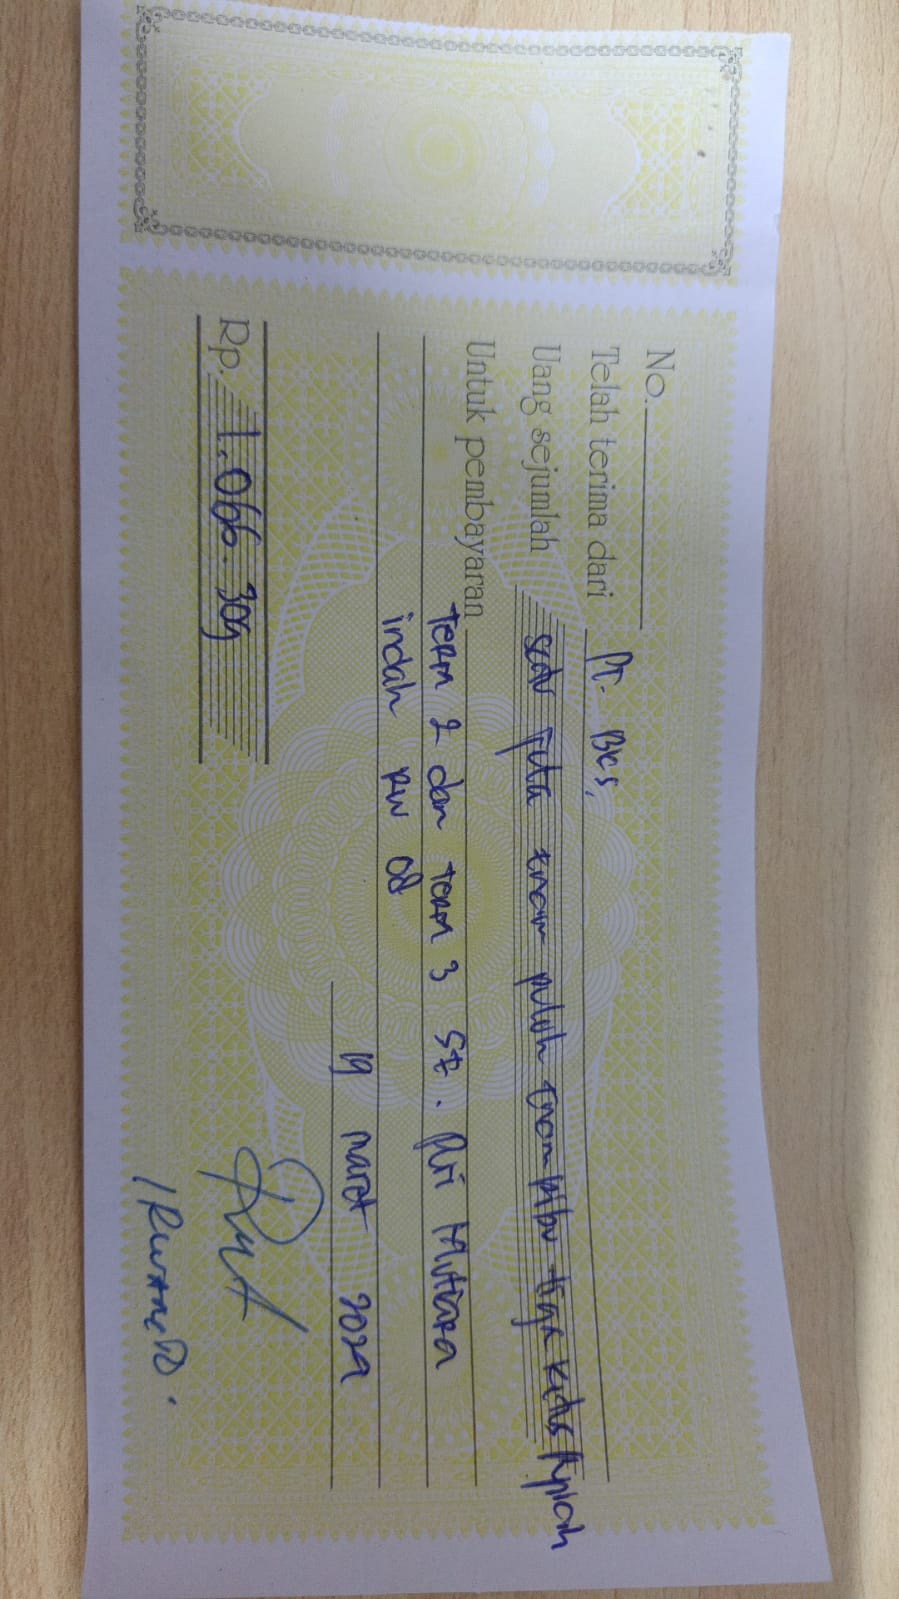 No.
Telah terima dari PT. BKS,
Uang sejumlah satu juta enam puluh enam ribu tiga ratus Rupiah
Untuk pembayaran
term 2 dan term 3 St. Puri Mutiara
indah RW 08
19 maret 2024
Rp. 1.066.309